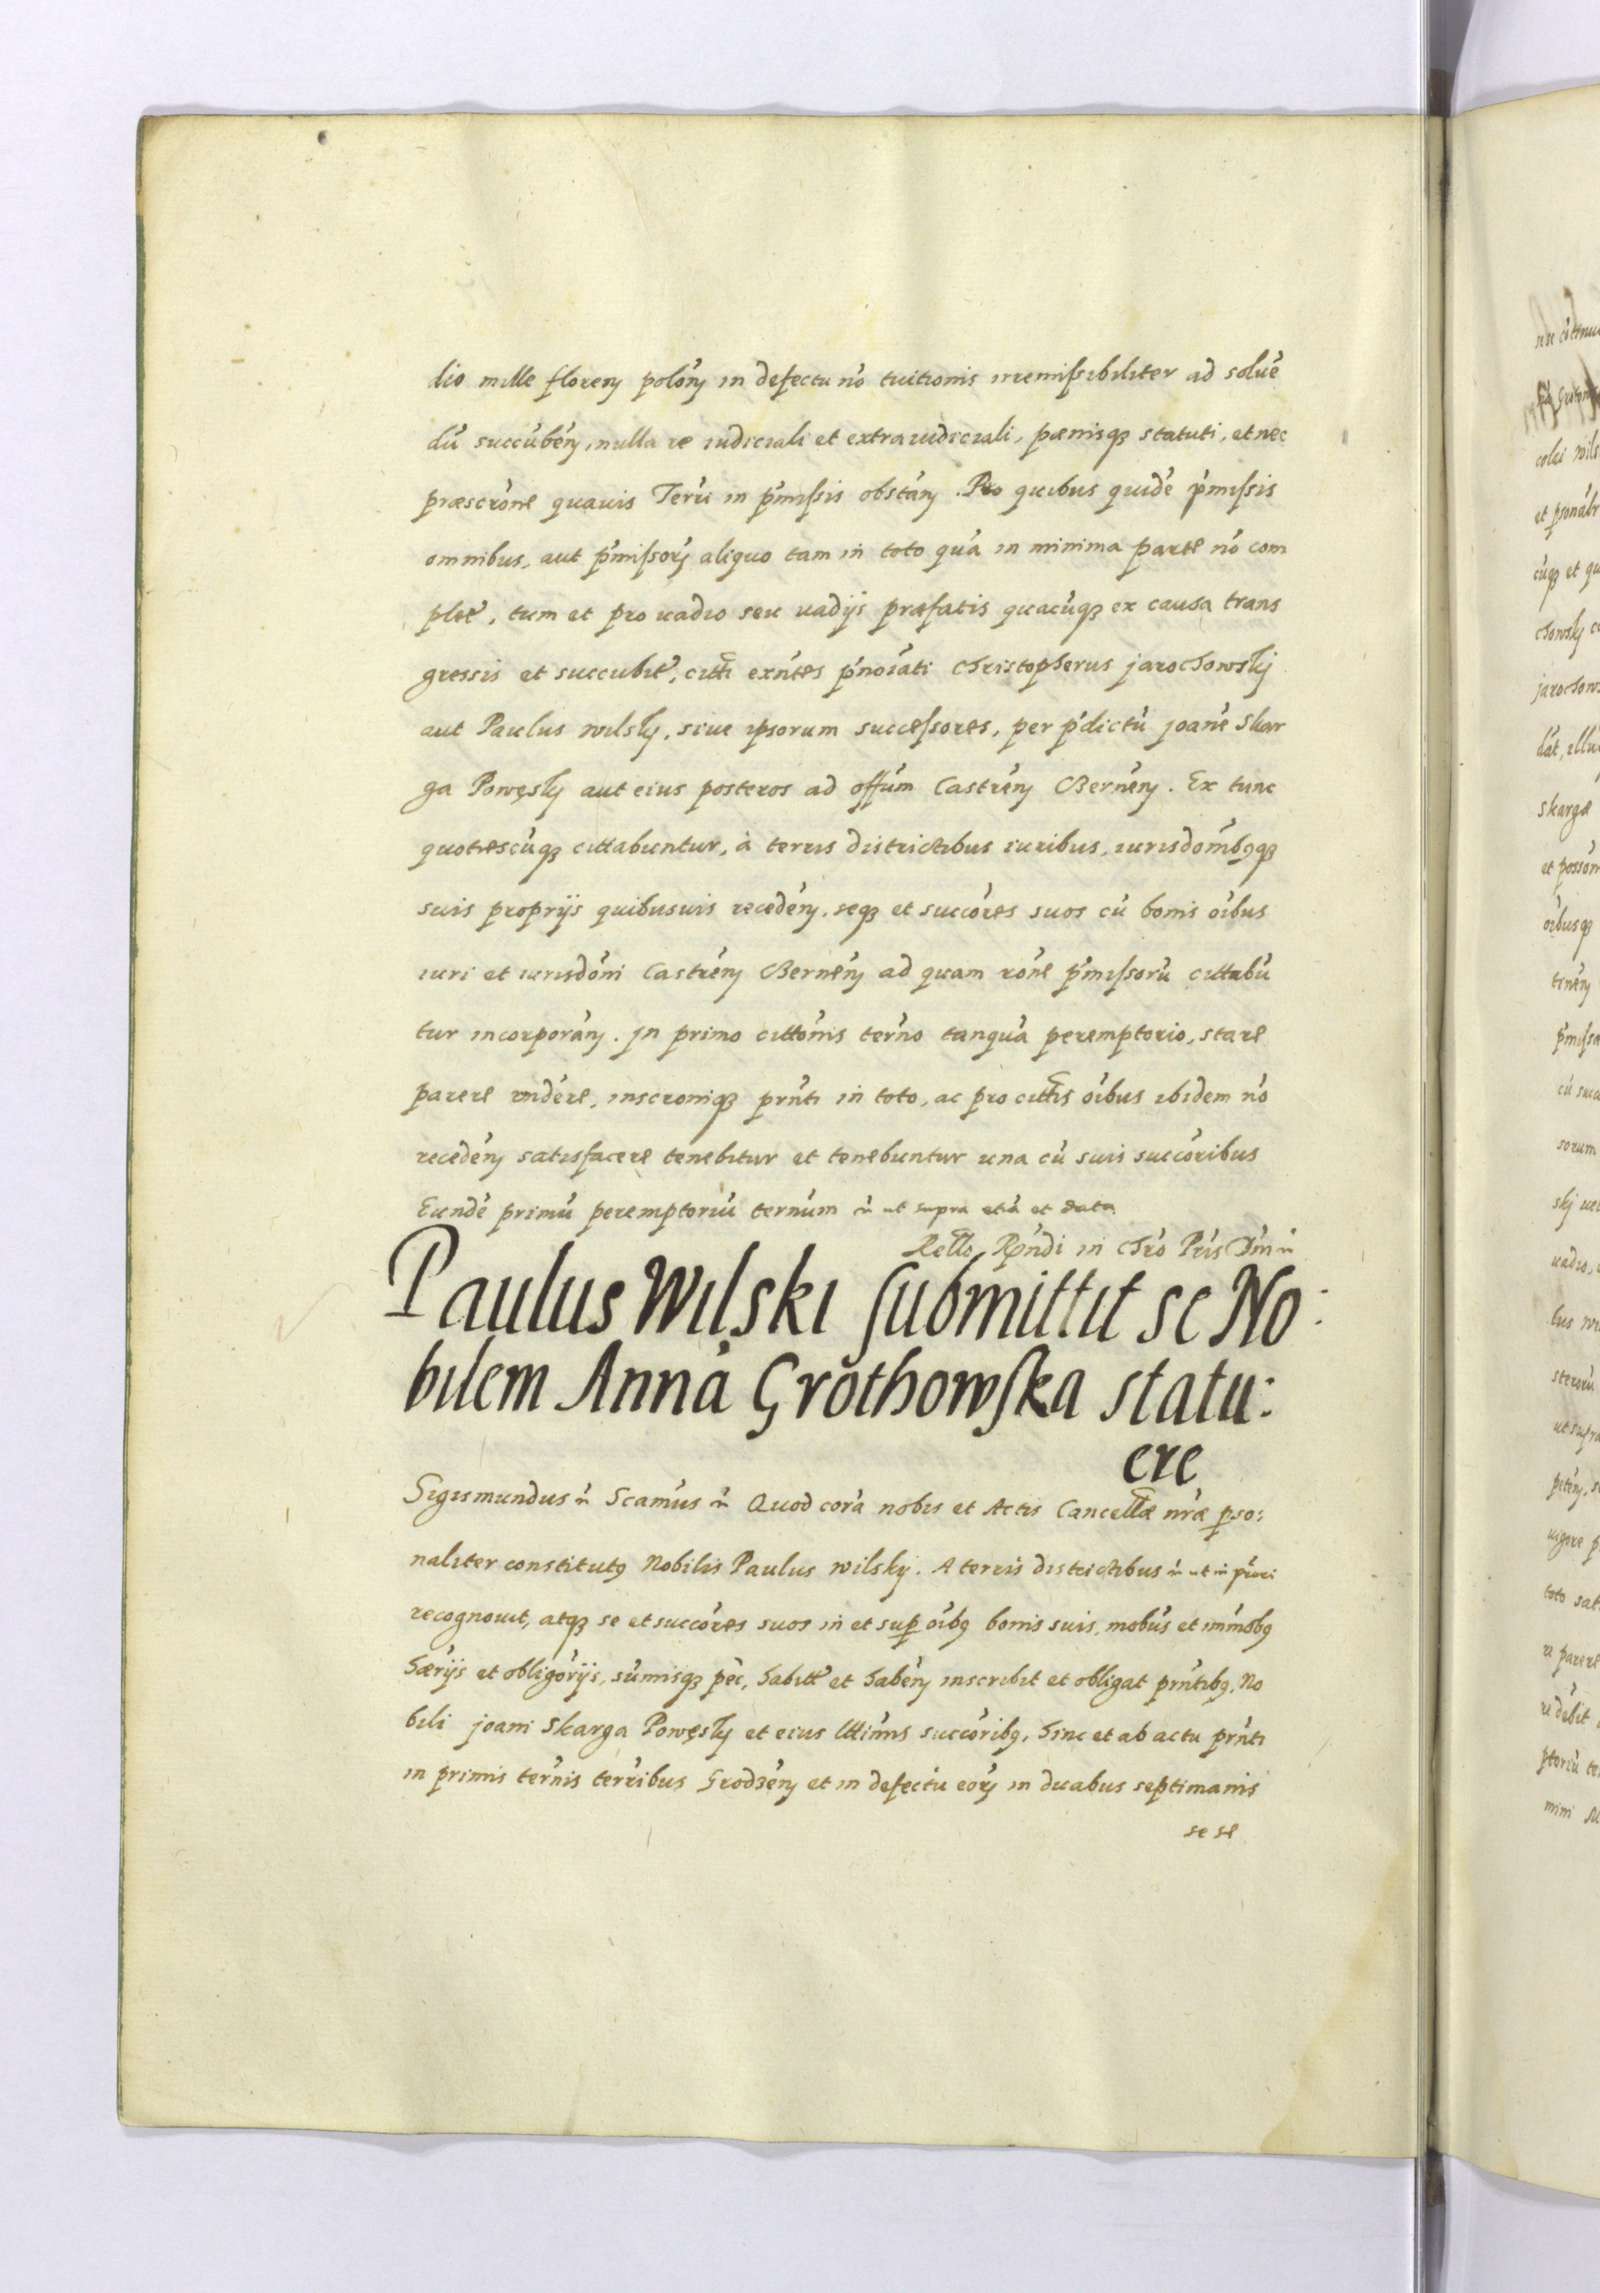 dio mille floreń polon̄ in defectu nō tuitionis irremissibiliter ad soluē
dū succūbeń, nulla re iudiciali et extraiudiciali, pænisqȝ statuti, et nec
præscrōne quavis Terrī in p̄missis obstań. Pro quibus quidē p̄missis
omnibus, aut p̄missorȝ aliquo tam in toto quā in minima parte nō com
plet̄, tum et pro vadio seu vadijs præfatis quacūqȝ ex causa trans
gressis et succubit̄, citti exn̄tes p̄noiati Christopherus jarochowskȷ
aut Paulus wilsky, siue ipsorum successores, per p̄dictū joanē Skar
ga Powęsky aut eius posteros ad offūm Castreń Berneń. Ex tunc
quotiescūqȝ cittabuntur, à terris districtibus iuribus, iurisdom̄bqȝ
suis proprijs quibusuis recedeń, seqȝ et succōres suos cū bonis oībus
iuri et iurisdōni Castreń Berneń ad quam rōne p̄missorū cittabū
tur incorporań. In primo cittōnis tern̄o tanquā peremptorio, stare
parere rn̄dere, inscronīqȝ prn̄ti in toto, ac pro cittis oībus ibidem nō
recedeń satisfacere tenebitur et tenebuntur una cū suis succōribus
Eundē primū peremptoriū tern̄um ut supra etiā et data
Rello Rn̄di in Chrō Pr̄is Dn̄i
Paulus Wilski submittit se No:
bilem Annā Grothowska statu:
ere
Sigismundus Scamūs Quod corā nobis et Actis Cancellæ nr̄æ pso:
naliter constitutꝯ Nobilis Paulus wilsky. A terris districtibus ut in priori
recognouit, atqȝ se et succōres suos in et sup oībꝯ bonis suis, mobūs et imm̄obꝯ
hærijs et obligōrijs, sūmisqȝ pēc, habitt̄ et habeń inscribit et obligat prn̄tibꝯ, No
bili joani Skarga Powęsky et eius lttim̄s succōribꝯ, hinc et ab actu prn̄ti
in primis tern̄is terrībus Grodzeń et in defectu eorȝ in duabus septimanis
se se